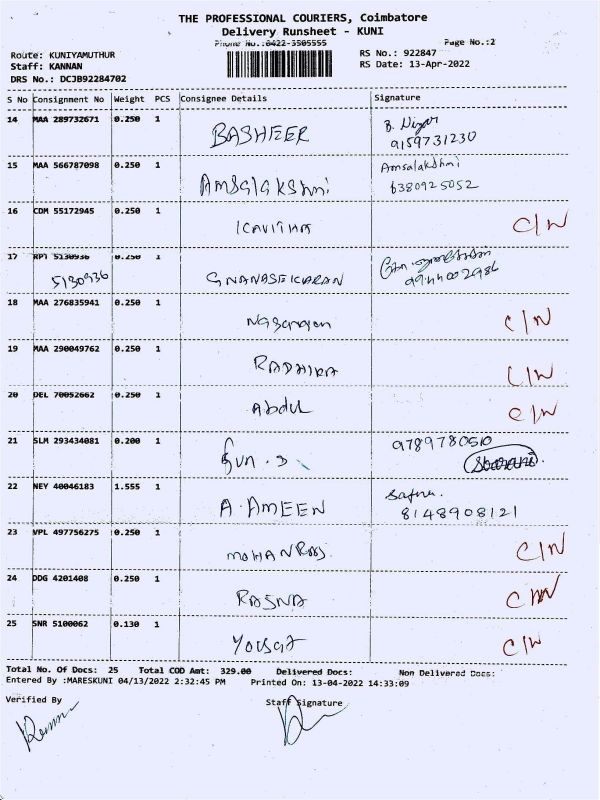 THE PROFESSIONAL COURIERS, Coimbatore
Delivery Runsheet - KUNI
Phone No.:0422-3505555 Page No.:2
Route: KUNIYAMUTHUR RS No.: 922847
Staff: KANNAN RS Date: 13-Apr-2022
DRS No.: DCJB92284702
S No Consignment No Weight PCS Consignee Details Signature
14 MAA 289732671 0.250 1 BASHEER B. Nizar
9159731230
15 MAA 566787098 0.250 1 Amsalakshmi Amsalakshmi
6380925052
16 CDM 55172945 0.250 1 KAVITHA C/N
17 RPT 5130936 0.250 1 GNANASEKARAN
5130936 9944002986
18 MAA 276835941 0.250 1 Nagarajan C/N
19 MAA 290049762 0.250 1 RADHIKA C/N
20 DEL 70052662 0.250 1 Abdul C/N
21 SLM 293434081 0.200 1 9789780510
22 NEY 40046183 1.555 1 A. AMEEN Safina.
8148908121
23 VPL 497756275 0.250 1 MOHANRAJ. C/N
24 DDG 4201408 0.250 1 RASNA C/N
25 SNR 5100062 0.130 1 C/N
Total No. Of Docs: 25 Total COD Amt: 329.00 Delivered Docs: Non Delivered Docs:
Entered By :MARESKUNI 04/13/2022 2:32:45 PM Printed On: 13-04-2022 14:33:09
Verified By Staff Signature